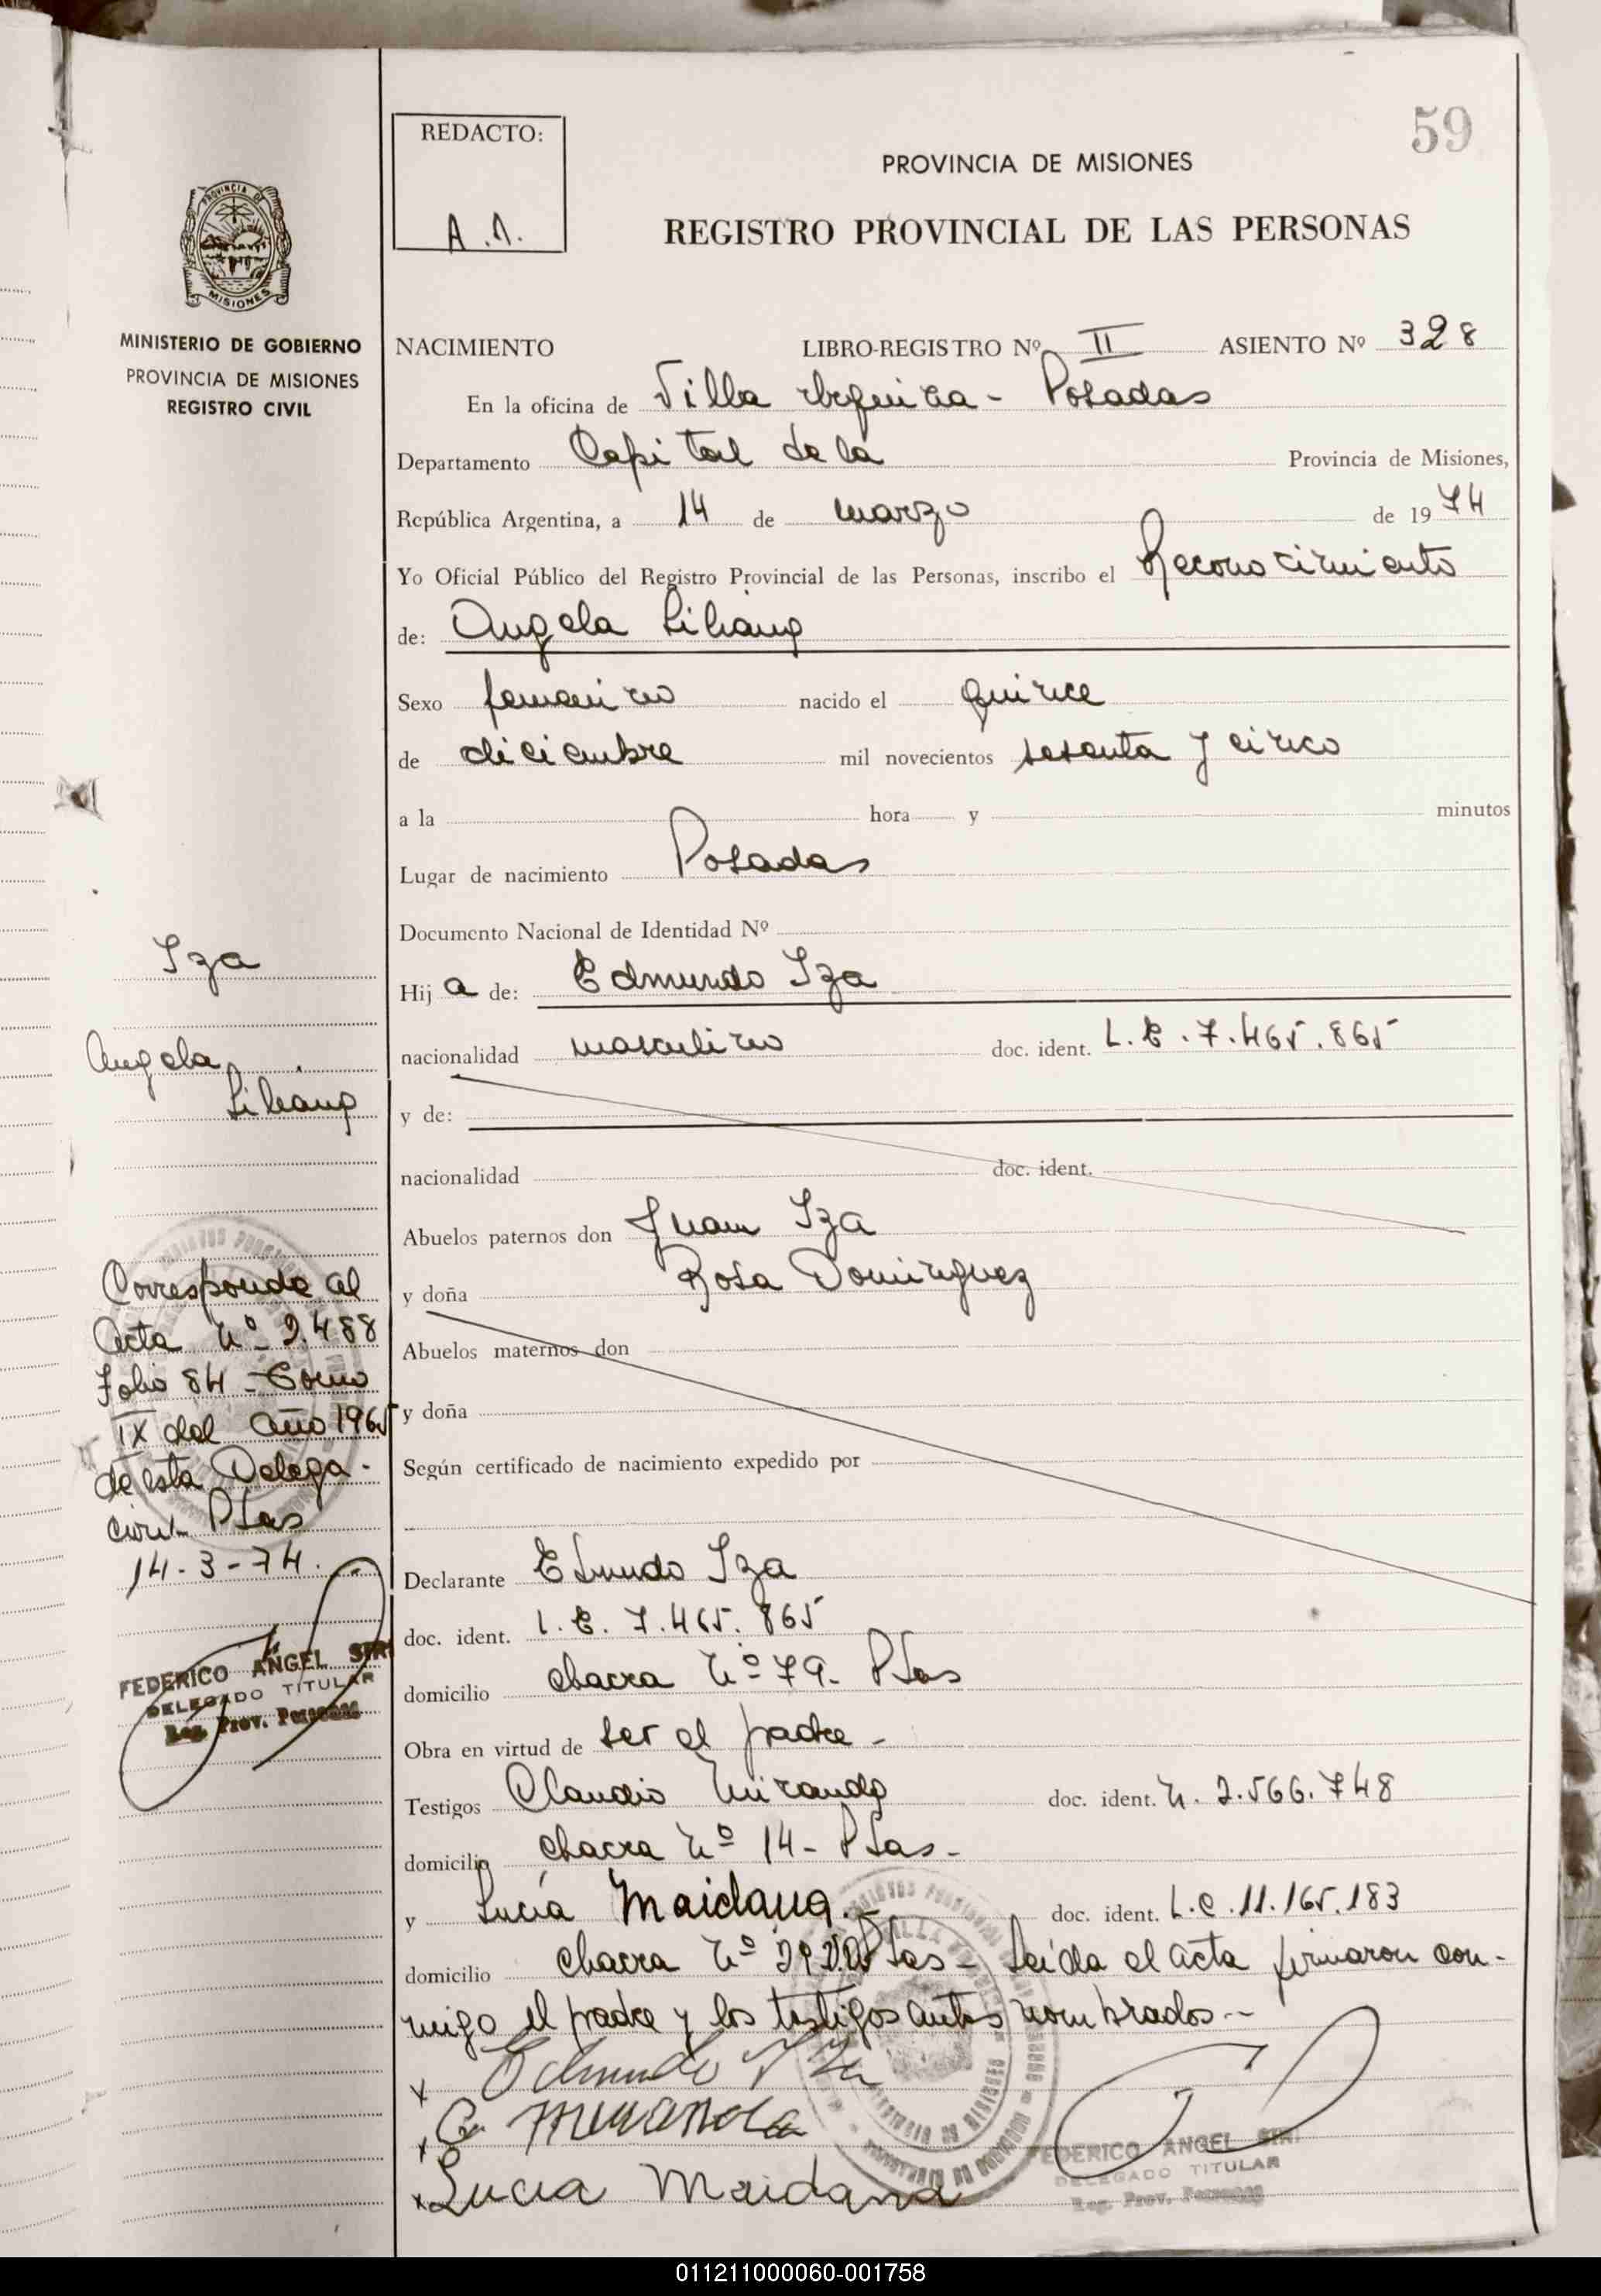 59
REDACTO:
A.A.
PROVINCIA DE MISIONES
REGISTRO PROVINCIAL DE LAS PERSONAS
PROVINCIA DE
MISIONES
MINISTERIO DE GOBIERNO
PROVINCIA DE MISIONES
REGISTRO CIVIL
NACIMIENTO LIBRO-REGISTRO Nº II ASIENTO Nº 328
En la oficina de Villa Urquiza - Posadas
Departamento Capital de la Provincia de Misiones,
República Argentina, a 14 de marzo de 1974
Yo Oficial Público del Registro Provincial de las Personas, inscribo el Reconocimiento
de: Angela Liliana
Sexo femenino nacido el quince
de diciembre mil novecientos sesenta y cinco
a la hora y minutos
Lugar de nacimiento Posadas
Documento Nacional de Identidad Nº
Hij a de: Edmundo Iza
nacionalidad masculino doc. ident. L.E. 7.465.865
y de:
nacionalidad doc. ident.
Abuelos paternos don Juan Iza
y doña Rosa Dominguez
Abuelos maternos don
y doña
Según certificado de nacimiento expedido por
Declarante Edmundo Iza
doc. ident. L.E. 7.465.865
domicilio chacra Nº 79- Pdas
Obra en virtud de ser el padre -
Testigos Claudio Miranda doc. ident. N. 2.566.748
domicilio chacra Nº 14- Pdas-
y Lucía Maidana.- doc. ident. L.C. 11.165.183
domicilio chacra Nº Pdas - Leida el acta firmaron con-
migo el padre y los testigos antes nombrados.-
x Edmundo Iza
x C. Miranda
x Lucia Maidana
FEDERICO ANGEL SIRI
DELEGADO TITULAR
Reg. Prov. Personas
Iza
Angela
Liliana
Corresponde al
Acta Nº 2.488
Folio 84 - Tomo
IX del año 1965
de esta Delega-
ción- Pdas
14-3-74.
FEDERICO ANGEL SIRI
DELEGADO TITULAR
Reg. Prov. Personas
011211000060-001758